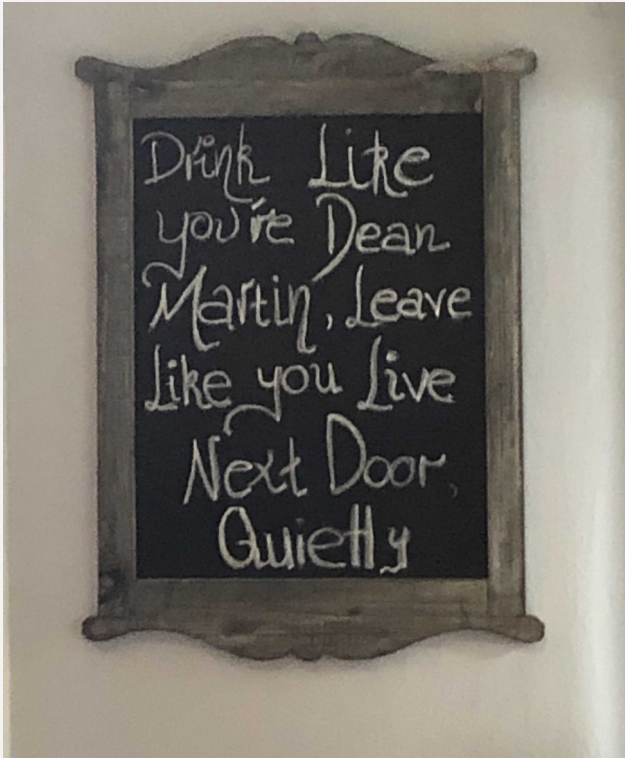 Drink Like
you're Dean
Martin, Leave
Like you Live
Next Door,
Quietly